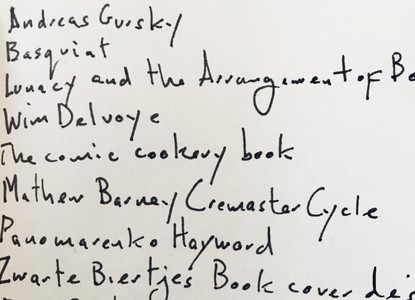 Andreas Gursky
Basquiat
Lunacy and the Arrangement of Bo
Wim Delvoye
The comic cookery book
Mathew Barney Cremaster Cycle
Panomarenko Hayward
Zwarte Biertjes Book cover des